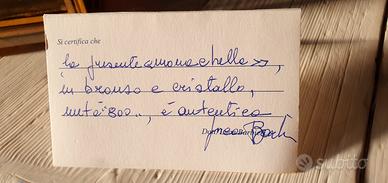 Si certifica che
la presente <<monachella>>,
in bronzo e cristallo,
metà '800.., è autentica
subito